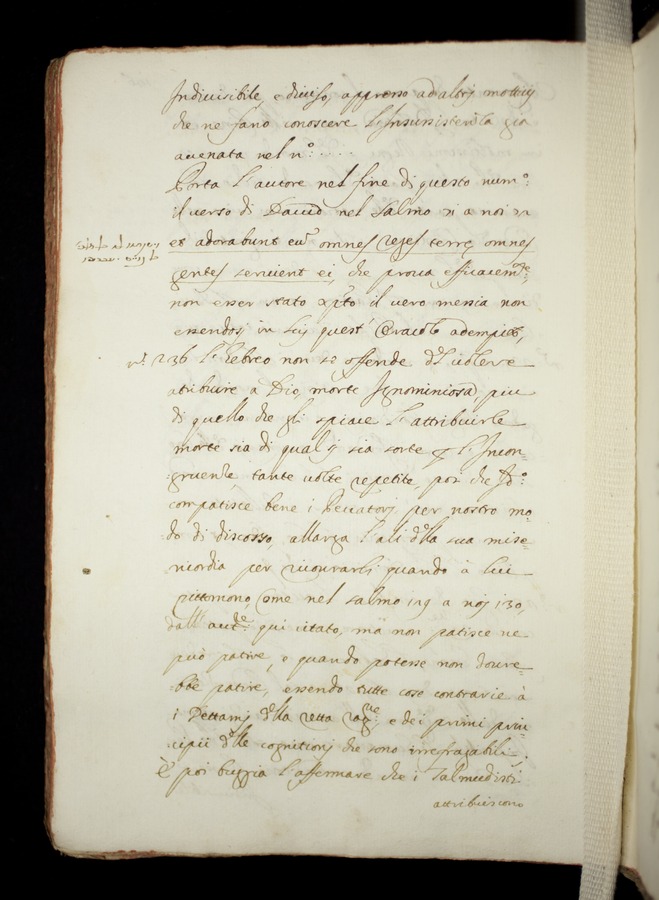 Indiuisibile, e diuiso, appresso ad altri mottiuj
che ne fano conoscere l'Insussistenza gia
auenata nel nº: ....
Porta l'autore nel fine di questo numº:
il verso di Dauid nel Salmo 71 a noi 72
et adorabunt eũ omnes reges terrę omnes
gentes seruient ei, che proua efficacemte:
non esser stato xp̃to il uero messia non
essendosj in luj quest' Oracolo adempito,
nº 236 l'Hebreo non si offende dl uolere
atribuire a Dio, morte Ignominiosa, piu
di quello che gli spiace l'attribuirle
morte sia di qual si sia sorte p l'Incon-
gruenze tante uolte repetite, poi che Idº:
compatisce bene i Peccatorj per nostro mo-
do di discorso, allarga l'ali dlla sua mise-
ricordia per ricourarli quando à lui
rittornono, Come nel salmo 129 a noj 130,
dall' autre: qui citato, mà non patisce ne
può patire, e quando potesse non doure-
bbe patire, essendo tutte cose contrarie à
i Dettamj dlla retta ragne: e dei primi prin
cipii dlle cognitionj che sono irrefragabili.
È poi buggia l'affermare che i Talmudisti
attribuiscono